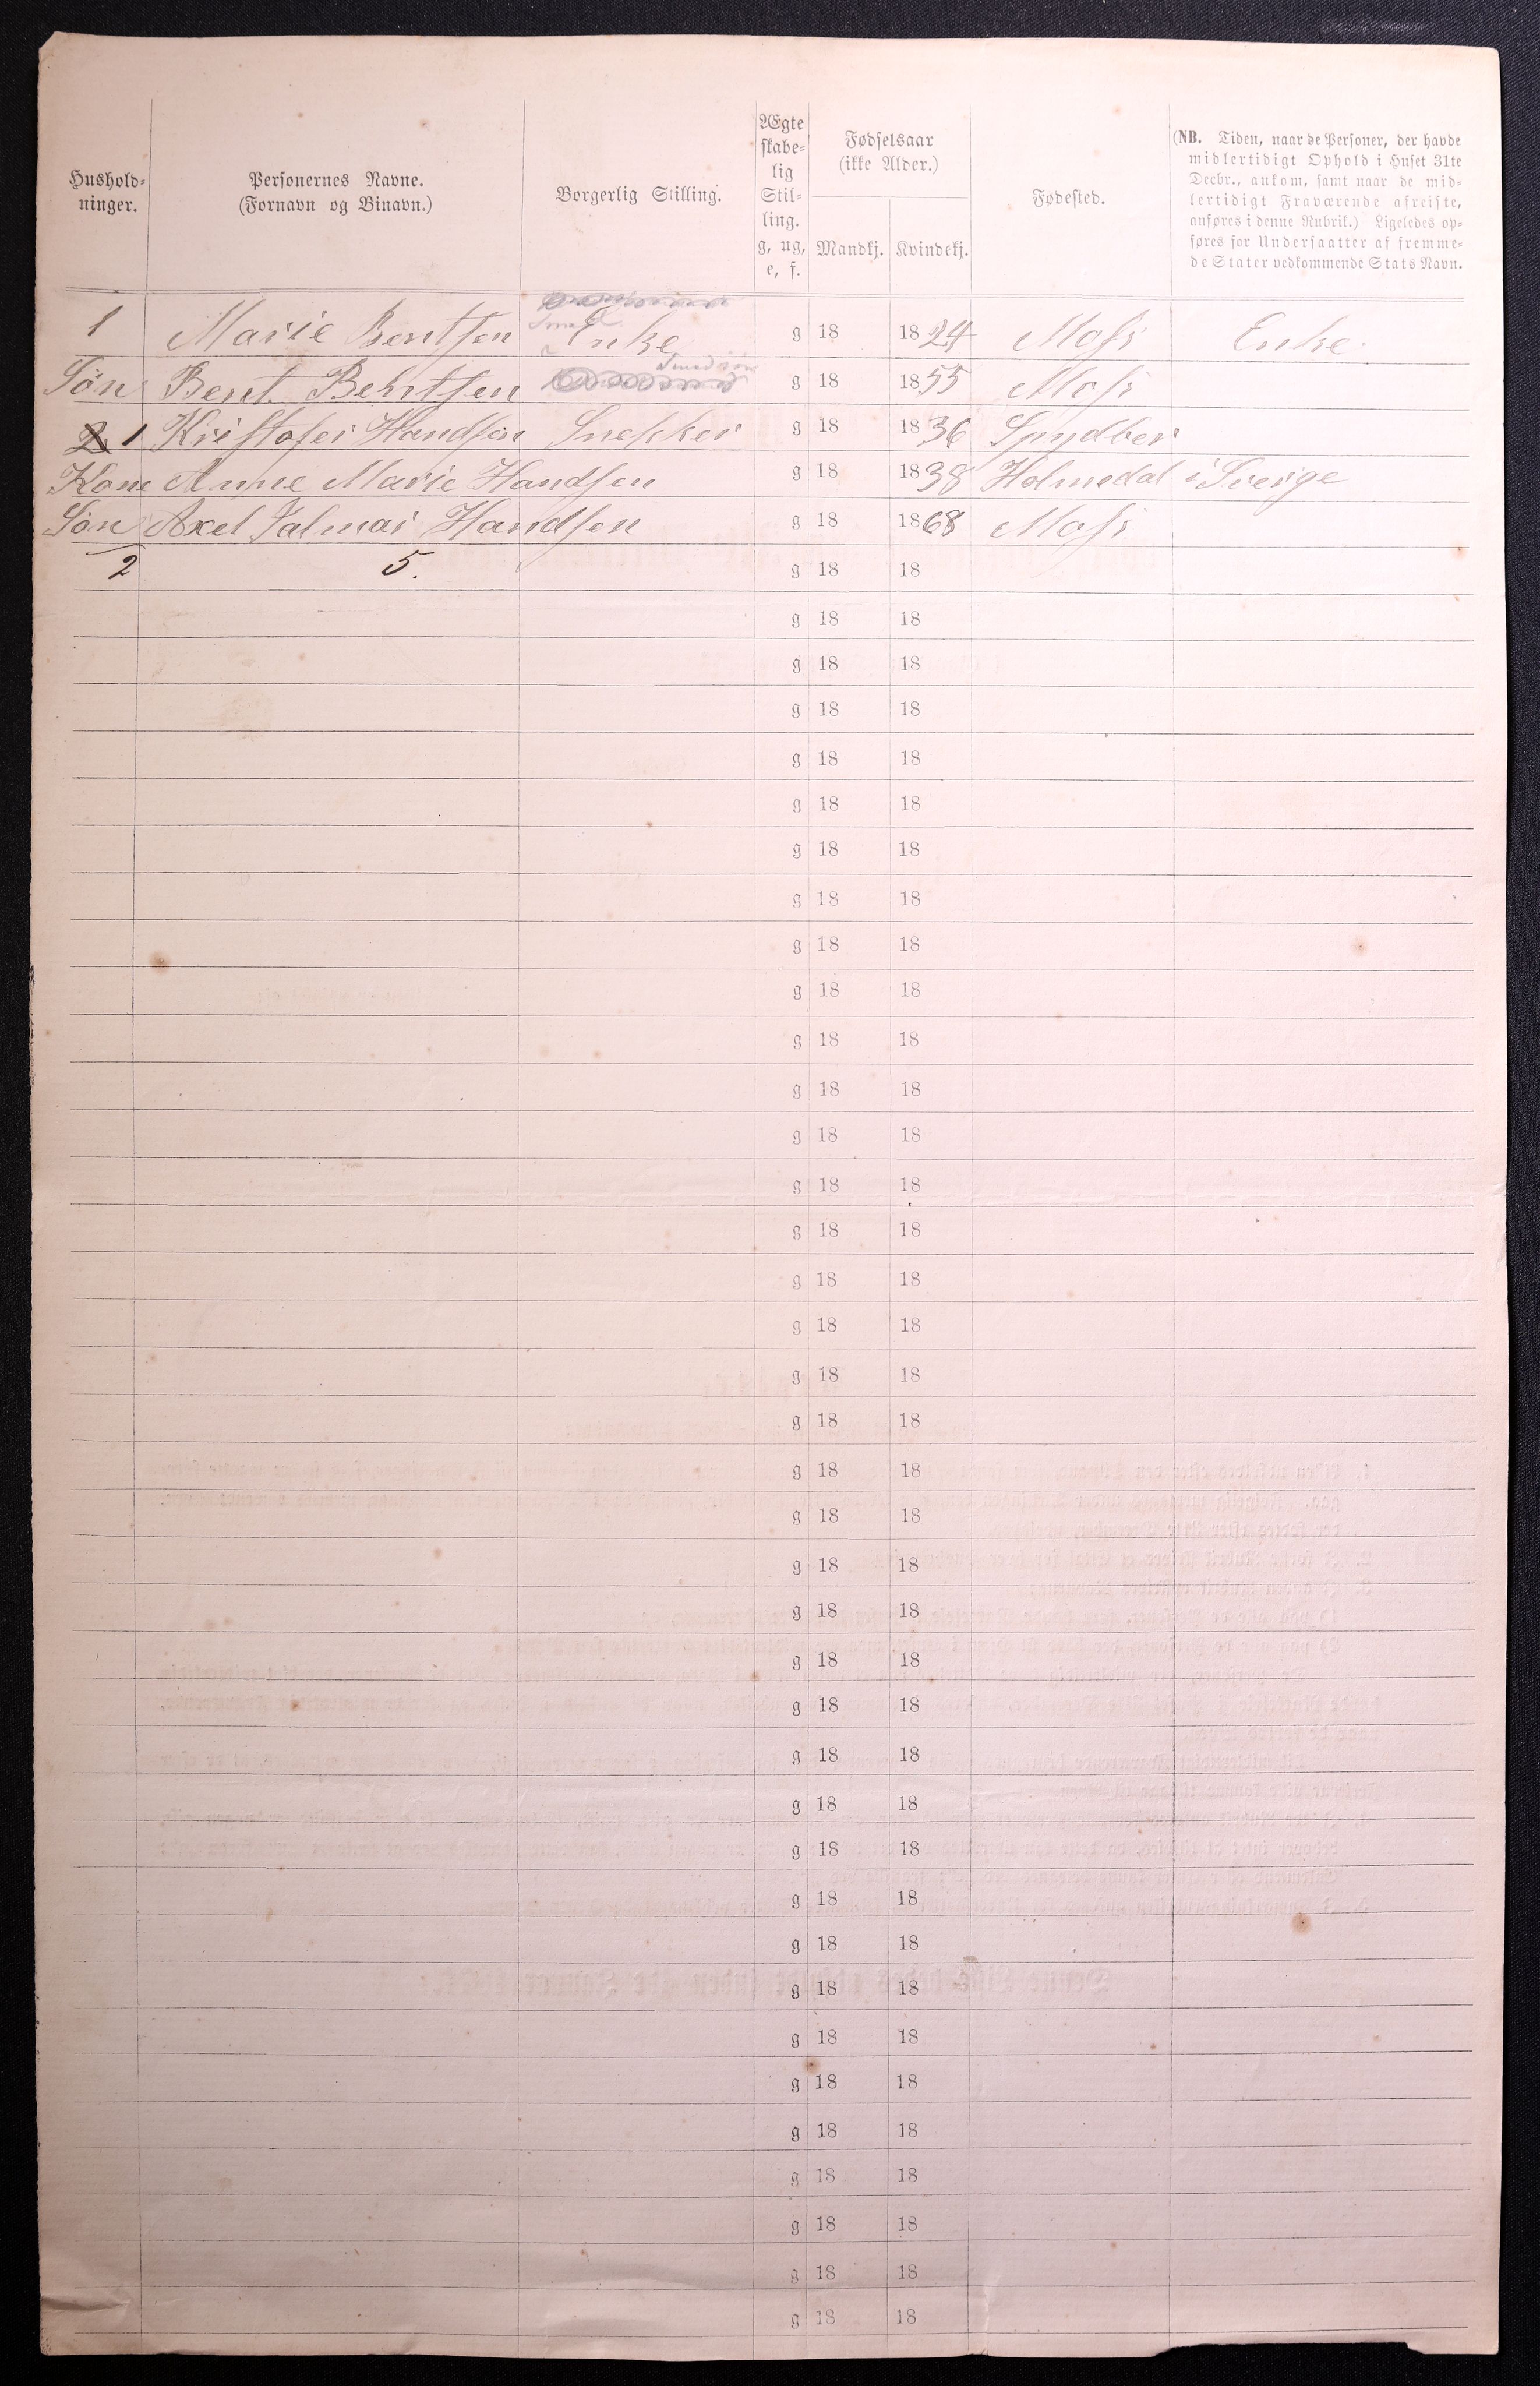 Hushold-
ninger.
Personernes Navne.
(Fornavn og Binavn.)
Borgerlig Stilling.
Ægte
skabe-
lig
Stil-
ling.
g, ug,
e, f.
Fødselsaar
(ikke Alder.)
Mandkj. Kvindekj.
Fødested.
(NB. Tiden, naar de Personer, der havde
midlertidigt Ophold i Huset 31te
Decbr., ankom, samt naar de mid-
lertidigt Fraværende afreiste,
anføres i denne Rubrik.) Ligeledes op-
føres for Undersaatter af fremme-
de Stater vedkommende Stats Navn.
1 Marie Bentsen Enke g 18 1824 Moss Enke.
Søn Bent Behntsen g 18 1855 Moss
2 1 Kristofer Handsen Snekker g 18 1836 Spydber
Kone Anne Marie Handsen g 18 1838 Holmedal i Sverige
Søn Axel Jalmar Handsen g 18 1868 Moss
2 5. g 18 18
g 18 18
g 18 18
g 18 18
g 18 18
g 18 18
g 18 18
g 18 18
g 18 18
g 18 18
g 18 18
g 18 18
g 18 18
g 18 18
g 18 18
g 18 18
g 18 18
g 18 18
g 18 18
g 18 18
g 18 18
g 18 18
g 18 18
g 18 18
g 18 18
g 18 18
g 18 18
g 18 18
g 18 18
g 18 18
g 18 18
g 18 18
g 18 18
g 18 18
g 18 18
g 18 18
g 18 18
g 18 18